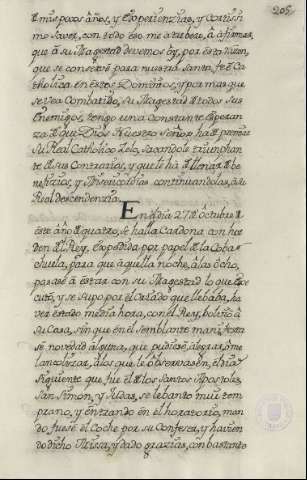 205
mis pocos años, y Experiencias, y Cortissi-
mo Saver, con todo eso me atrebere, â afirmar,
que â su Magestad devemos oy, por esta razon,
que se conserve pura nuestra Santa fee Ca-
tholica en estos Dominios, y por mas que
se vea Combatido, su Magestad de todos sus
Enemigos, tengo una constante Esperan-
za de que Dios Nuestro Señor ha de premiar
su Real Catholico Zelo, Sacandole triunphan-
te de sus Contrarios, y que le ha de llenar de be-
neficios, y continuandolas, â su
Real descendencia.
En el dia 27 de Octubre de
este año de quatro, se halla Cardona con hor-
den del Rey, Expedida por papel de la Coba-
chuela, para que aquella noche, â las ôcho,
passase â estar con su Magestad lo que Exe-
cutó, y se supo por el Criado que llebaba, ha-
ver estado media hora, con el Rey, bolvió â
su Casa, sin que en el Semblante manifesta-
se novedad alguna, que pudiese, alegrar, ô me-
lancolizar, â los que le observasen, el dia
siguiente que fue el de los Santos Apostoles,
San Simon, y Judas, se lebanto mui tem-
prano, y entrando en el horatorio, man-
do fuese el Coche por su Confesor, y havien-
do dicho Missa, y dado grazias, con bastante